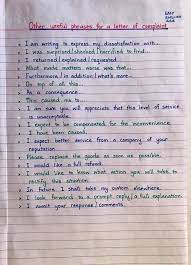 EASY
ENGLISH
Other useful phrases for a letter of complaint
• I am writing to express my dissatisfaction with...
• I was surprised/shocked/horrified to find...
• I returned/explained/requested
• What made matters worse was that...
• Furthermore/In addition/What's more...
• On top of all this...
• As a consequence...
• This caused me to...
• I am sure you will appreciate that this level of service
is unacceptable.
• I expect to be compensated for the inconvenience
I have been caused.
• I expect better service from a company of your
reputation
• Please replace the goods as soon as possible.
• I would like a full refund.
• I would like to know what action you will take to
rectify this situation.
• In future I shall take my custom elsewhere.
• I look forward to a prompt reply/a full explanation.
• I await your response/comments.